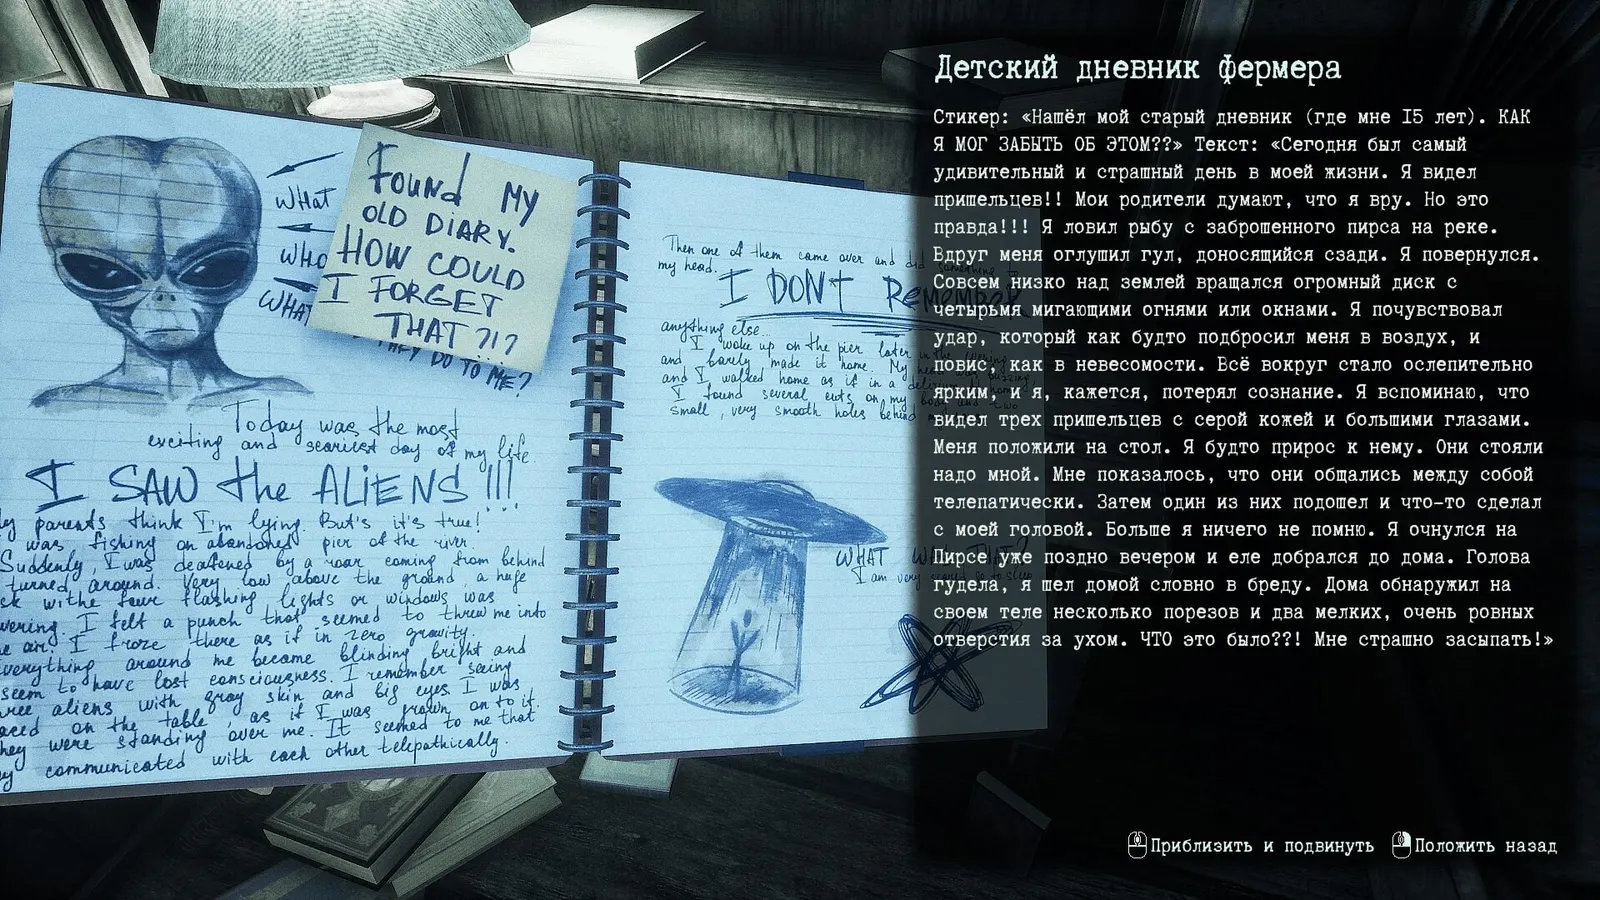 WHAT
WHO
WHAT
FOUND MY
OLD DIARY.
HOW COULD
I FORGET
THAT?!?
THEY DO TO ME?
Today was the most
exciting and scariest day of my life.
I SAW the ALiENS!!!
parents think I'm lying. But's it's true!
was fishing on abandoned pier of the river.
Suddenly, I was deafened by a roar coming from behind
turned around. Very low above the ground, a huge
withe four flashing lights or windows was
I felt a punch that seemed to threw me into
air. I froze there as if in zero gravity.
everything around me became blinding bright and
seem to have lost consciousness. I remember seeing
aliens with gray skin and big eyes. I was
on the table, as if I was grown on to it.
they were standing over me. It seemed to me that
communicated with each other telepathically.
Then one of them came over and did something to
my head.
I DON't Remember
anything else...
I woke up on the pier later in the evening
and barely made it home. My head was buzzing
and I walked home as if in a delirium.
I found several cuts on my body and two
small, very smooth holes behind my
WHAT WAS THAT?
I am very scared to sleep
Детский дневник фермера
Стикер: «Нашёл мой старый дневник (где мне 15 лет). КАК
Я МОГ ЗАБЫТЬ ОБ ЭТОМ??» Текст: «Сегодня был самый
удивительный и страшный день в моей жизни. Я видел
пришельцев!! Мои родители думают, что я вру. Но это
правда!!! Я ловил рыбу с заброшенного пирса на реке.
Вдруг меня оглушил гул, доносящийся сзади. Я повернулся.
Совсем низко над землей вращался огромный диск с
четырьмя мигающими огнями или окнами. Я почувствовал
удар, который как будто подбросил меня в воздух, и
повис, как в невесомости. Всё вокруг стало ослепительно
ярким, и я, кажется, потерял сознание. Я вспоминаю, что
видел трех пришельцев с серой кожей и большими глазами.
Меня положили на стол. Я будто прирос к нему. Они стояли
надо мной. Мне показалось, что они общались между собой
телепатически. Затем один из них подошел и что-то сделал
с моей головой. Больше я ничего не помню. Я очнулся на
Пирсе уже поздно вечером и еле добрался до дома. Голова
гудела, я шел домой словно в бреду. Дома обнаружил на
своем теле несколько порезов и два мелких, очень ровных
отверстия за ухом. ЧТО это было??! Мне страшно засыпать!»
Приблизить и подвинуть
Положить назад